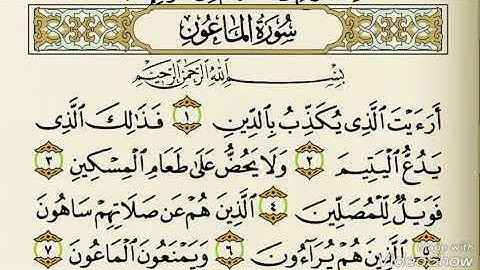 سُورَةُ المَاعُونِ
بِسْمِ اللَّهِ الرَّحْمَٰنِ الرَّحِيمِ
أَرَءَيْتَ ٱلَّذِى يُكَذِّبُ بِٱلدِّينِ ١ فَذَٰلِكَ ٱلَّذِى
يَدُعُّ ٱلْيَتِيمَ ٢ وَلَا يَحُضُّ عَلَىٰ طَعَامِ ٱلْمِسْكِينِ ٣
فَوَيْلٌ لِّلْمُصَلِّينَ ٤ ٱلَّذِينَ هُمْ عَن صَلَاتِهِمْ سَاهُونَ
٥ ٱلَّذِينَ هُمْ يُرَآءُونَ ٦ وَيَمْنَعُونَ ٱلْمَاعُونَ ٧
Made with
VideoShow